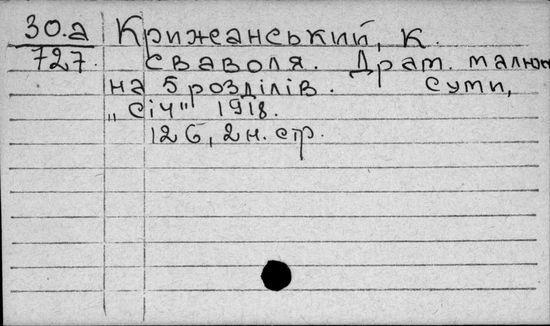 30.a Крижанський, К.
727. Сваволя. Драт. малюн
на 5 розділів. Суми,
„Січ" 1918.
126, 2 н. стр.